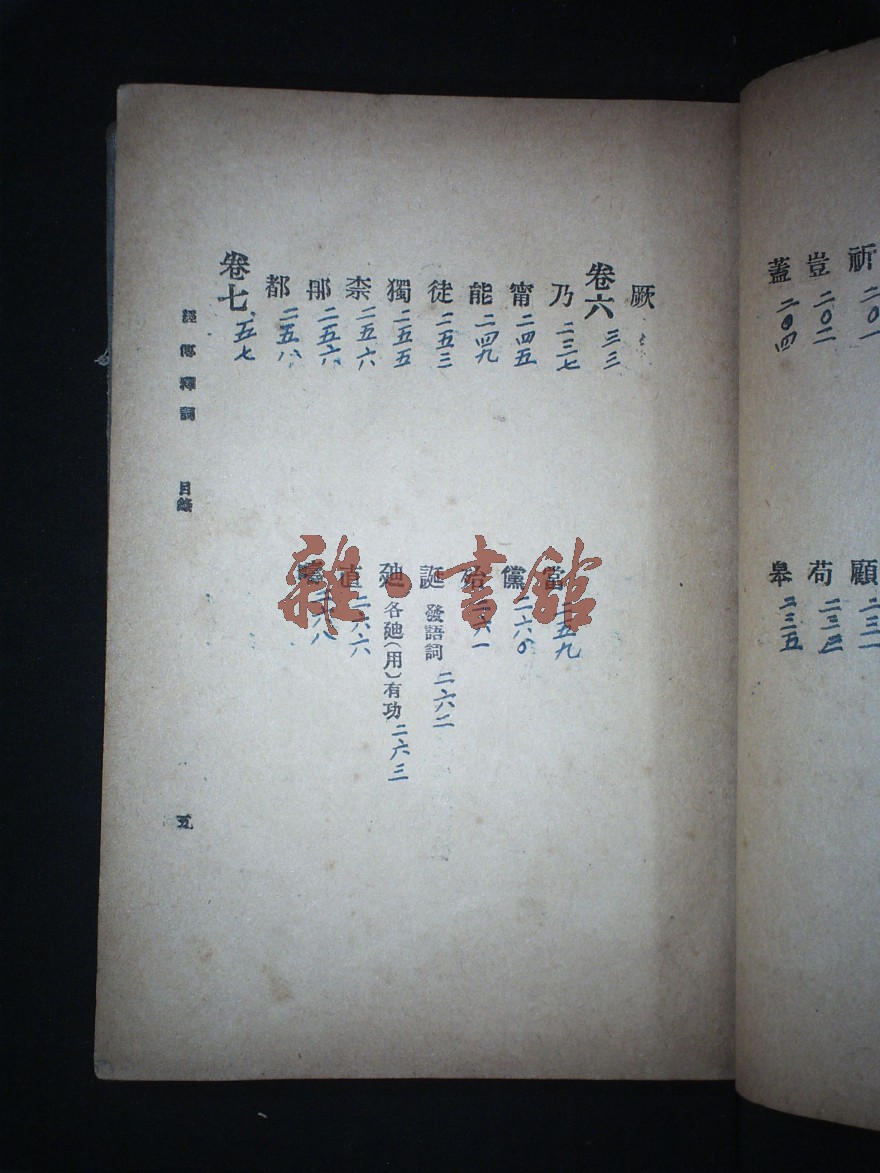 祈 二〇一
豈 二〇二
蓋 二〇四
顧 二三一
苟
皋 二三五
厥
卷六 三三
乃 二三七
甯 二四五
能 二四九
徒 二五三
獨 二五五
柰 二五六
那 二五六
都 二五八
卷七 五七
當 二五九
儻 二六〇
殆 二六一
誕 發語詞 二六二
迪 各迪(用)有功 二六三
直 二六六
疇 六八
經傳釋詞 目錄 五
雜·書館